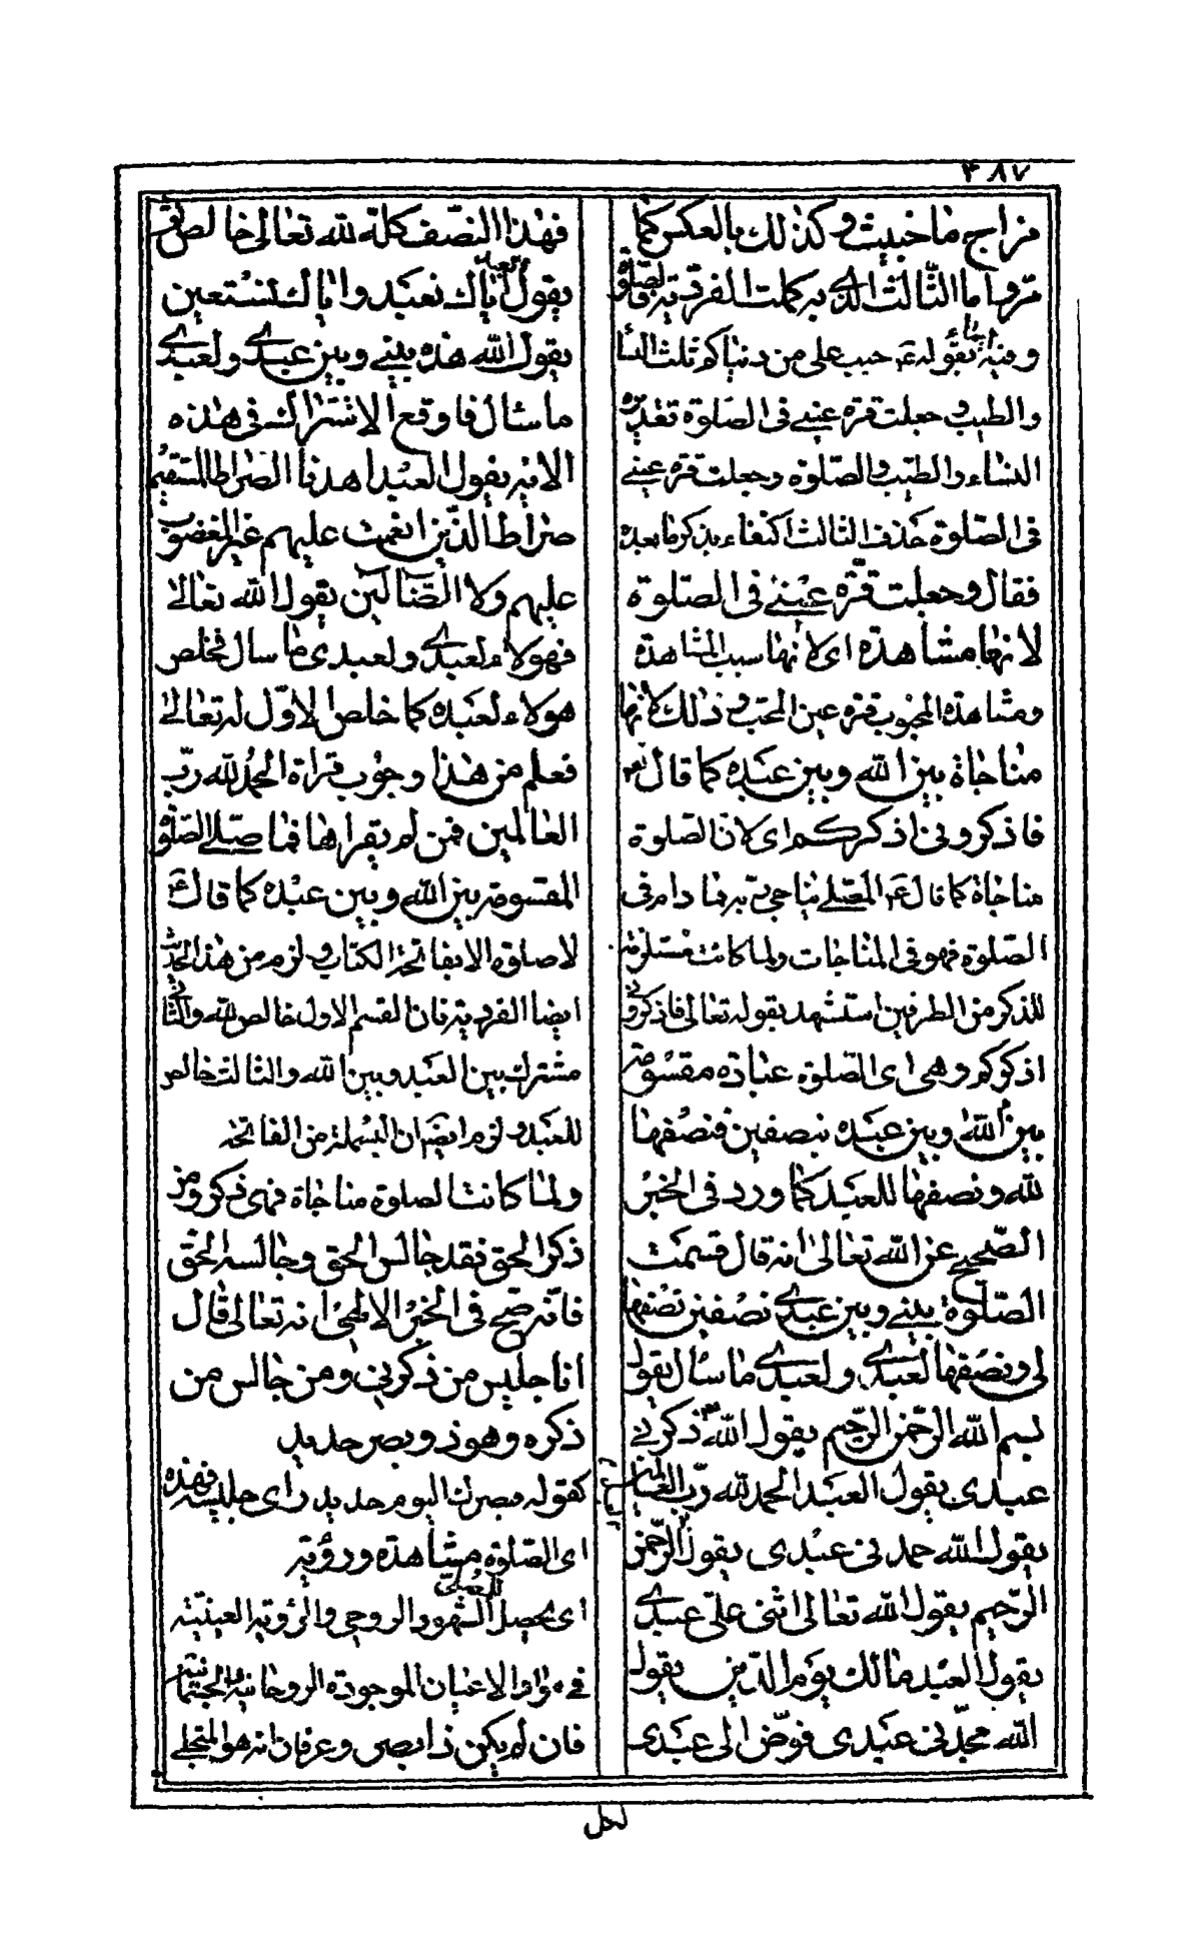 ۴۸۷
مزاج ما خبيث وكذلك بالعكس كما
مر واما الثالث الذى به كملت الفردية فالصلوة
وبينه ايضا بقوله عم حبب على من دنياكم ثلث النسا
والطيب وجعلت قرة عينى فى الصلوة تقديره
النساء والطيب والصلوة وجعلت قرة عينى
فى الصلوة حذف الثالث اكتفاء بذكر ما بعده
فقال وجعلت قرة عينى فى الصلوة
لانها مشاهدة اى لانها سبب المشاهدة
ومشاهدة المحبوب قرة عين المحب وذلك لانها
مناجاة بين الله وبين عبده كما قال تعم
فاذكرونى اذكركم اى لان الصلوة
مناجاة كما قال عم المصلى يناجى ربه فما دام فى
الصلوة فهو فى المناجات ولما كانت مستلزمة
للذكر من الطرفين استشهد بقوله تعالى فاذكرونى
اذكركم وهى اى الصلوة عبادة مقسومة
بين الله وبين عبده بنصفين فنصفها
لله ونصفها للعبد كما ورد فى الخبر
الصحيح عن الله تعالى انه قال قسمت
الصلوة بينى وبين عبدى نصفين نصفها
لى ونصفها لعبدى ولعبدى ما سال يقول
بسم الله الرحمن الرحيم يقول الله ذكرنى
عبدى يقول العبد الحمد لله رب العالمين
يقول الله حمدنى عبدى يقول الرحمن
الرحيم يقول الله تعالى اثنى على عبدى
يقول العبد مالك يوم الدين يقول
الله مجدنى عبدى فوض الى عبدى
فهذا النصف كله لله تعالى خالص ثم
يقول العبد اياك نعبد واياك نستعين
يقول الله هذه بينى وبين عبدى ولعبدى
ما سال فاوقع الاشتراك فى هذه
الاية يقول العبد اهدنا الصراط المستقيم
صراط الذين انعمت عليهم غير المغضوب
عليهم ولا الضالين يقول الله تعالى
فهولاء لعبدى ولعبدى ما سال فخلص
هولاء لعبده كما خلص الاول له تعالى
فعلم من هذا وجوب قراة الحمد لله رب
العالمين فمن لم يقراها فما صلى الصلوة
المقسومة بين الله وبين عبده كما قال عم
لا صلوة الا بفاتحة الكتاب ولزم من هذا الحديث
ايضا الفردية فان القسم الاول خالص لله والثانى
مشترك بين العبد وبين الله والثالث خالص
للعبد ولزم ايضا ان البسملة من الفاتحة
ولما كانت الصلوة مناجاة فهى ذكر ومن
ذكر الحق فقد جالس الحق وجالسه الحق
فانه صح فى الخبر الالهى انه تعالى قال
انا جليس من ذكرنى ومن جالس من
ذكره وهو ذو بصر حديد
كقوله فبصرك اليوم حديد راى جليسه فهذه
اى الصلوة مشاهدة ورؤية
اى يحصل للمصلى الشهود الروحى والرؤية العينية
فى مواد الاعيان الموجودة الروحانية والجسمانية
فان لم يكن ذا بصر وعرفان انه هو المتجلى
لكل